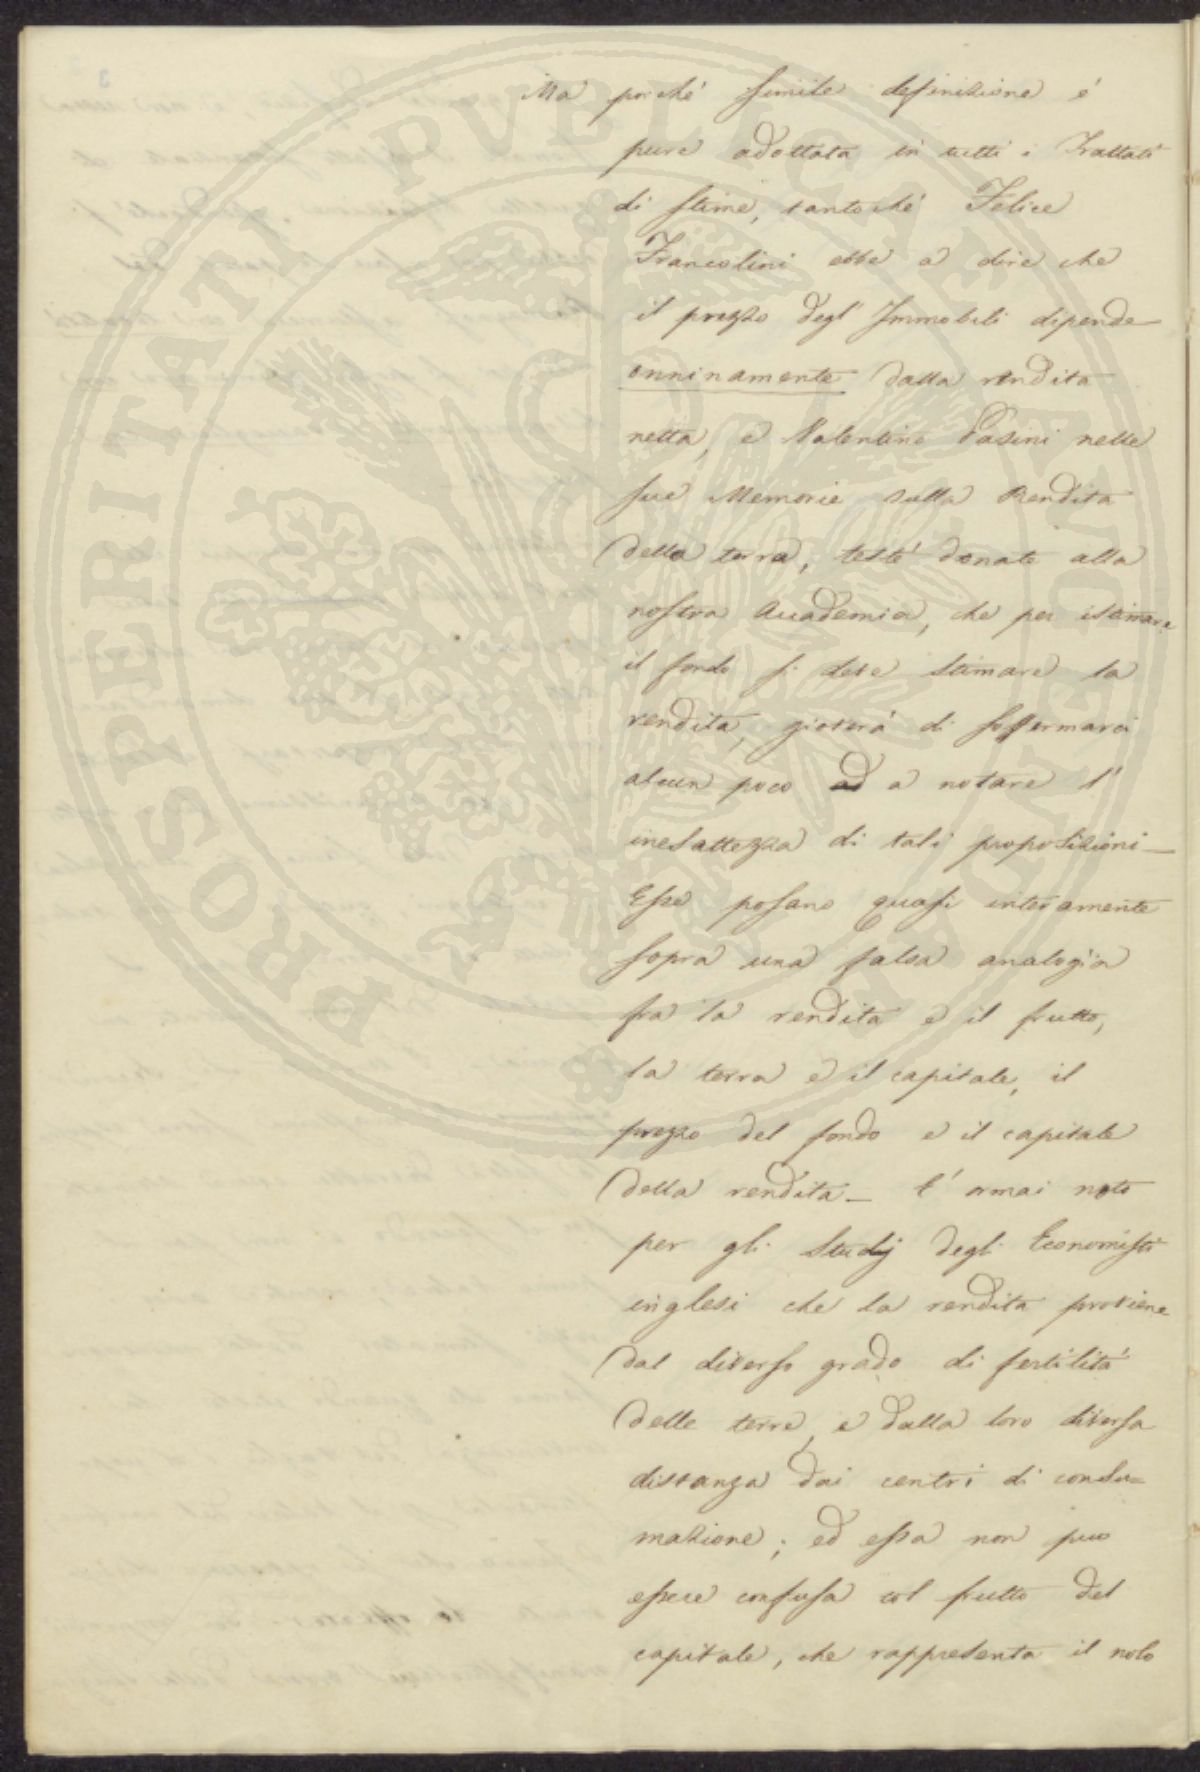 Ma poiché simile definizione é
pure adottata in tutti i Trattati
di stime, tantoché Felice
Francolini ebbe a dire che
il prezzo degl'Immobili dipende
onninamente dalla rendita
netta, e Valentino Pasini nelle
sue Memorie sulla Rendita
della terra, testé donate alla
nostra Accademia, che per istimare
il fondo si deve stimare la
rendita, gioverá di soffermarci
alcun poco ad a notare l'
inesattezza di tali proposizioni_
Esse posano quasi interamente
sopra una falsa analogia
fra la rendita e il frutto,
la terra e il capitale, il
prezzo del fondo e il capitale
della rendita_ E' ormai noto
per gli Studj degli Economisti
inglesi che la rendita proviene
dal diverso grado di fertilitá
delle terre, e dalla loro diversa
distanza dai centri di consu=
mazione; ed essa non puo
essere confusa col frutto del
capitale, che rappresenta il nolo
PROSPERITATI PVBLICAE AVGENDAE